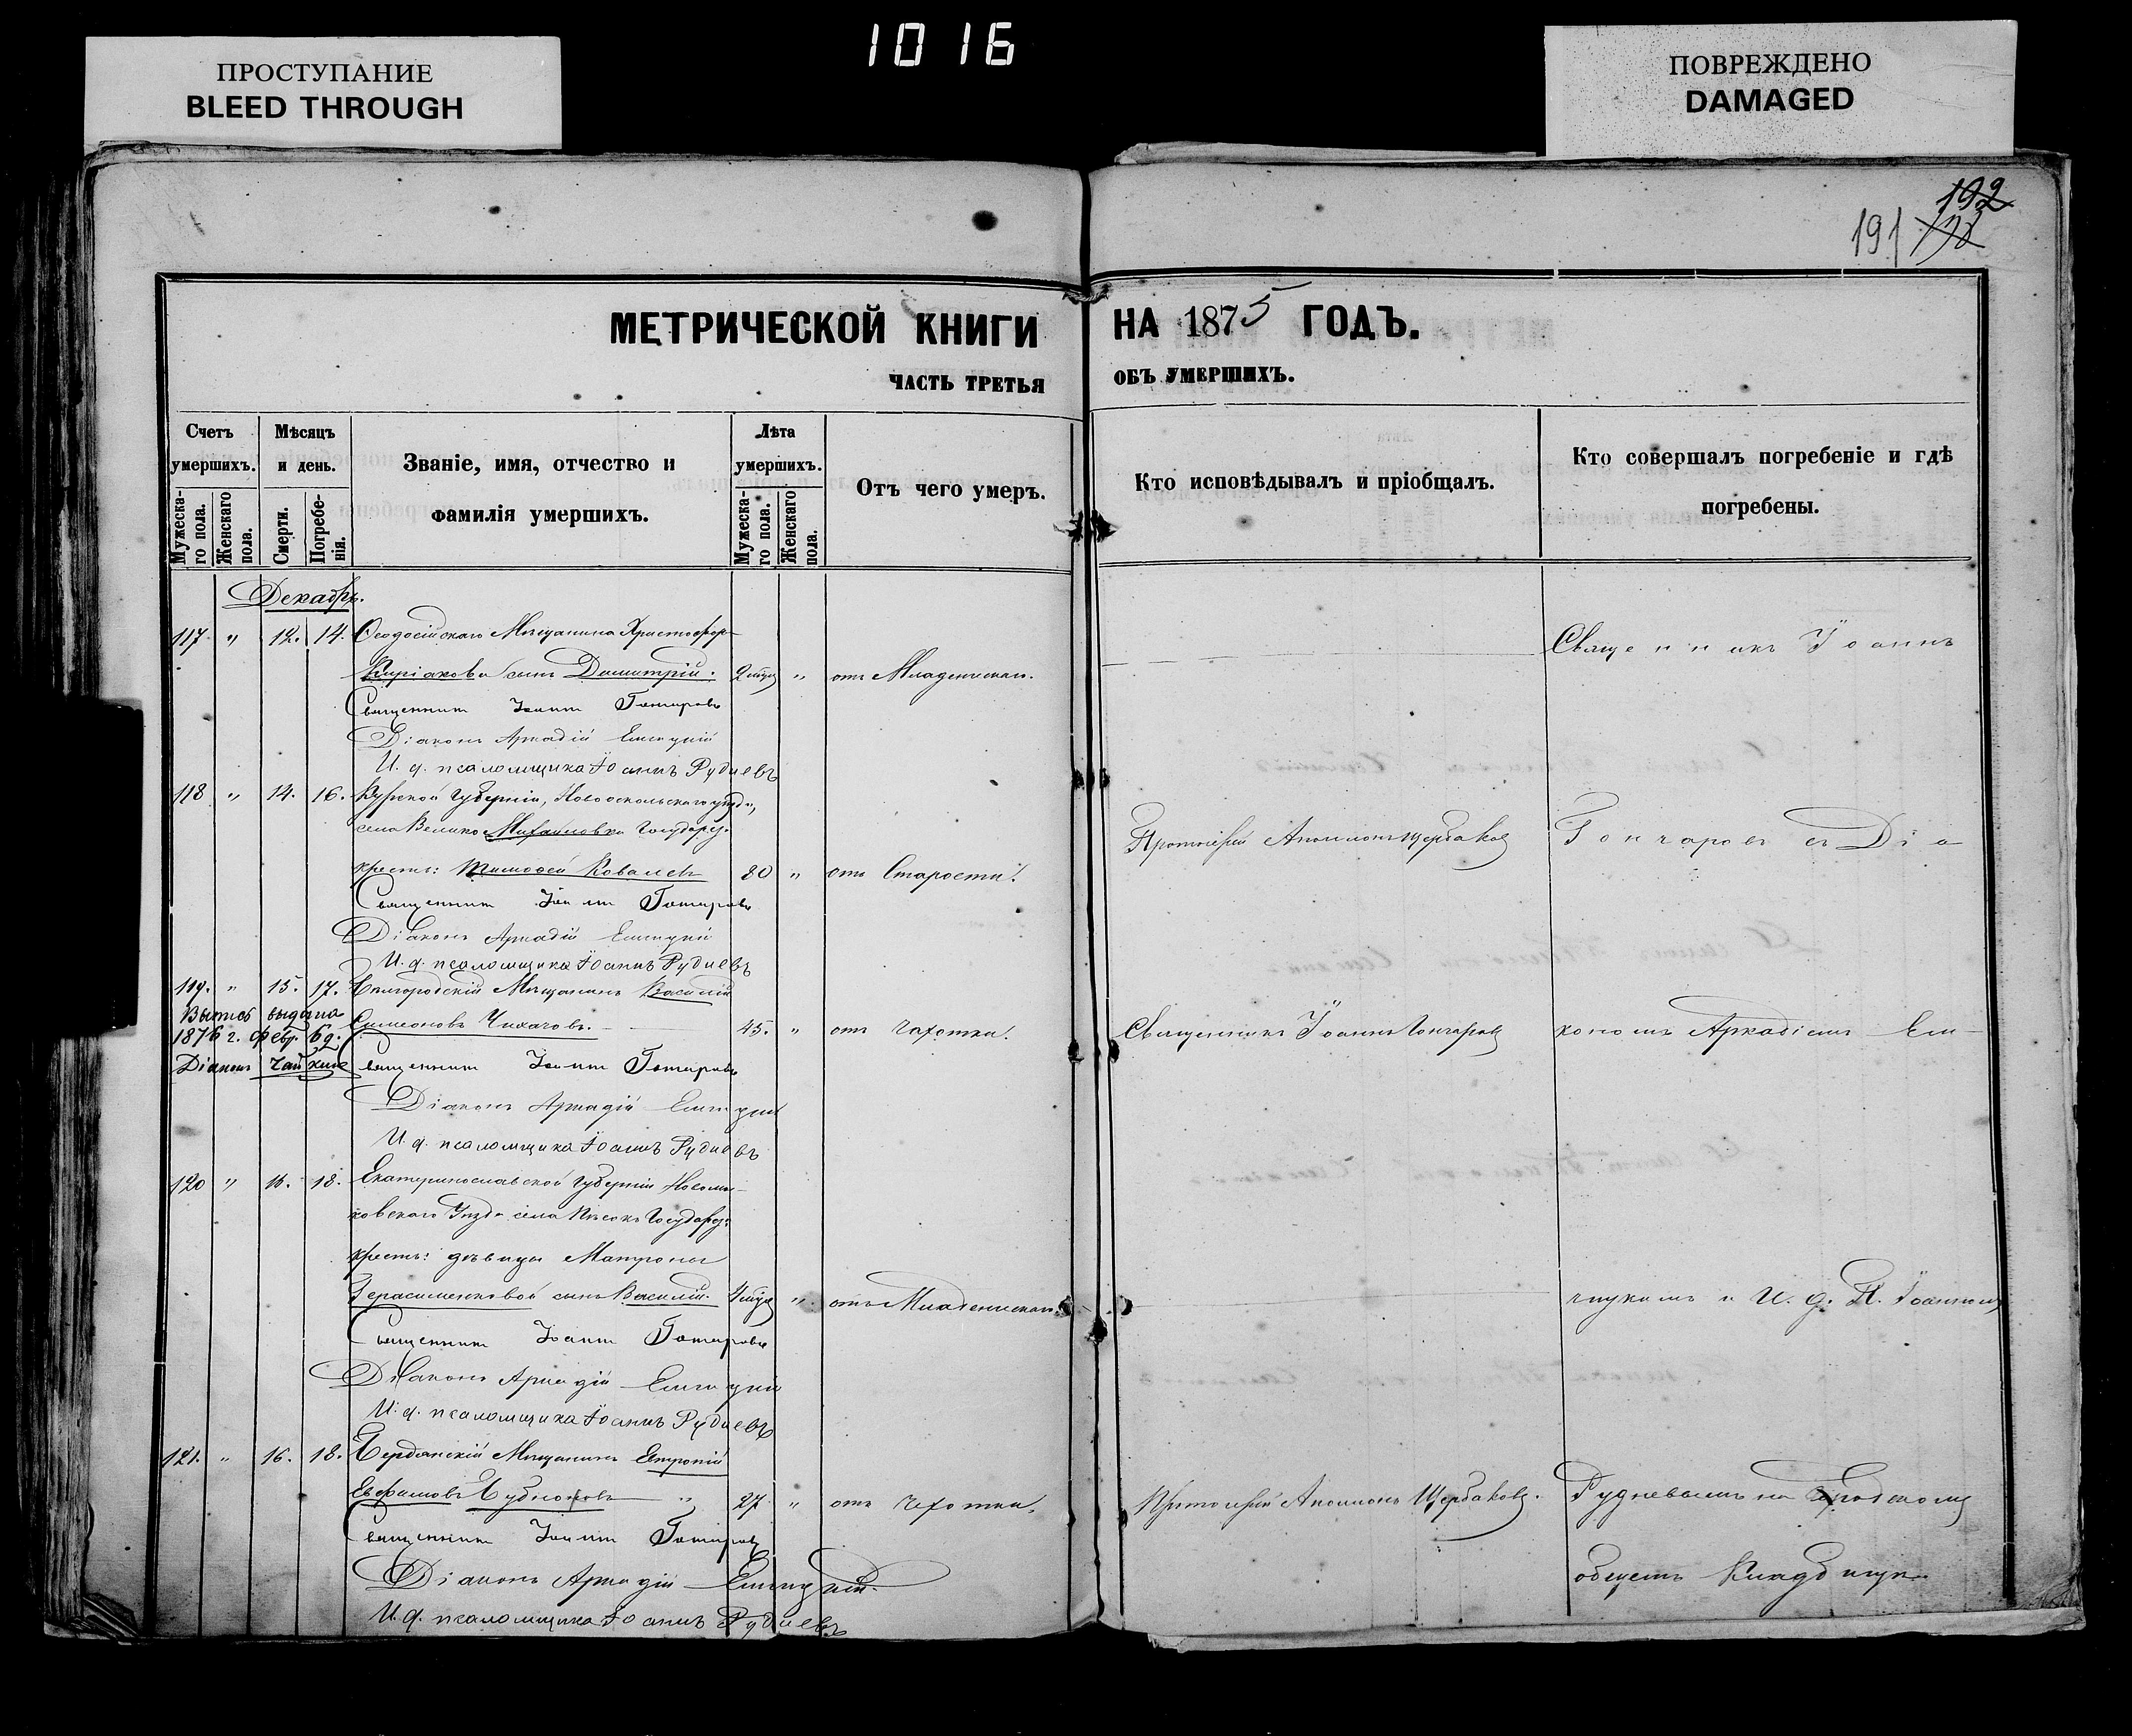 1016
ПРОСТУПАНИЕ
BLEED THROUGH
ПОВРЕЖДЕНО
DAMAGED
192
191
МЕТРИЧЕСКОЙ КНИГИ НА 1875 ГОДЪ.
ЧАСТЬ ТРЕТЬЯ ОБЪ УМЕРШИХЪ.
Счетъ умершихъ.
Мужеска-го пола.
Женскаго пола.
Мѣсяцъ и день.
Смерти.
Погребе-нія.
Званіе, имя, отчество и фамилія умершихъ.
Лѣта умершихъ.
Мужеска-го пола.
Женскаго пола.
Отъ чего умеръ.
Кто исповѣдывалъ и пріобщалъ.
Кто совершалъ погребеніе и гдѣ погребены.
Декабрь.
117. " 12. 14. Ѳеодосійскаго Мѣщанина Христофора Священникъ Іоаннъ
Киріакова сынъ Димитрій. " отъ Младенческой.
Священникъ Іоаннъ Гончаровъ
Діаконъ Аркадій
И. д. псаломщика Іоаннъ Рудневъ
118 " 14. 16. Курской Губерніи, Новооскольскаго уѣзда,
села Велико Михайловки Государ. Протоіерей Аполлонъ Щербаковъ Гончаровъ съ Діа
крестьян: Тимоѳей Ковалевъ 80 " отъ Старости.
Священникъ Іоаннъ Гончаровъ
Діаконъ Аркадій
И. д. псаломщика Іоаннъ Рудневъ
119. " 15. 17. Бѣлгородскій Мѣщанинъ Василій
Выпись выдана
1876 г. Февр. 62.
Діаконъ
Симеоновъ Чихачовъ. 45. " отъ Чахотки. Священникъ Іоаннъ Гончаровъ кономъ Аркадіемъ
Священникъ Іоаннъ Гончаровъ
Діаконъ Аркадій
И. д. псаломщика Іоаннъ Рудневъ
120 " 18. Екатеринославской Губерніи Новомос-
ковскаго Уѣзда села Государ:
крест: дѣвицы Матроны
Герасименковой сынъ Василій. " отъ Младенческой. и И. д. П. Іоанномъ
Священникъ Іоаннъ Гончаровъ
Діаконъ Аркадій
И. д. псаломщика Іоаннъ Рудневъ
121. " 16. 18. Бердянскій Мѣщанинъ Евтропій
Евфимовъ " 27. " отъ Чахотки. Протоіерей Аполлонъ Щербаковъ. Рудневымъ на Городскомъ
Священникъ Іоаннъ Гончаровъ
Діаконъ Аркадій общемъ Кладбищѣ.
И. д. псаломщика Іоаннъ Рудневъ